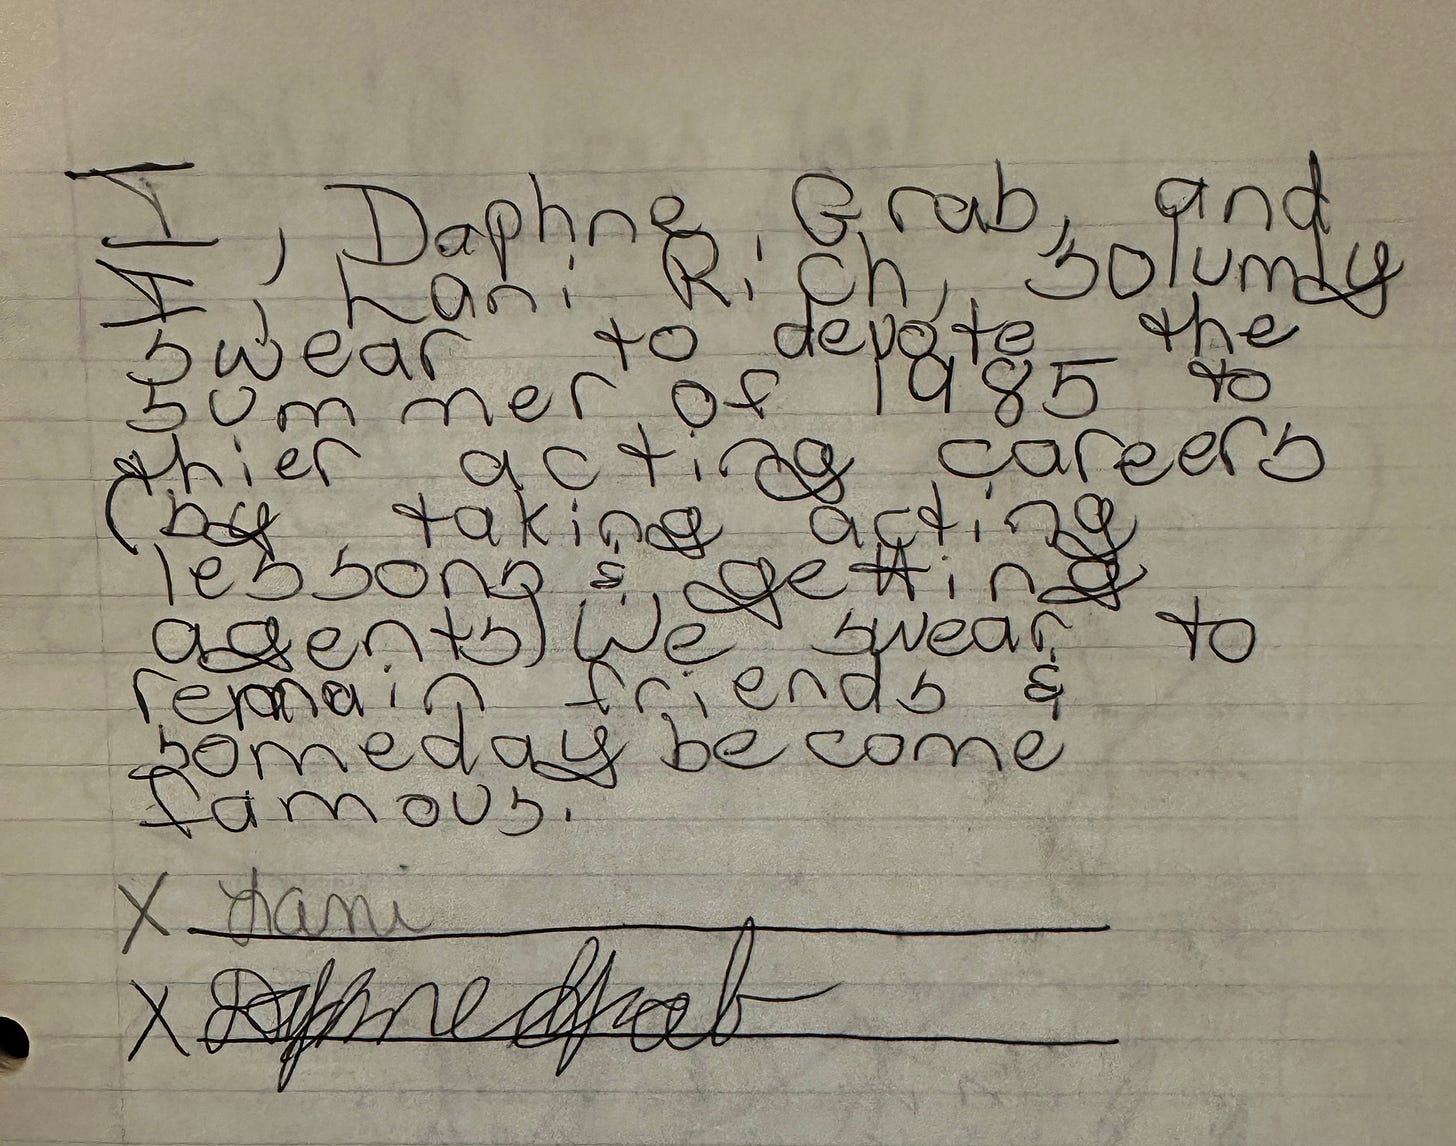 I, Daphne Grab, and
I, Lani Rich, solumly
swear to devote the
summer of 1985 to
thier acting careers
(by taking acting
lessons & getting
agents) We swear to
remain friends &
someday become
famous.
X Lani
X Daphne Grab